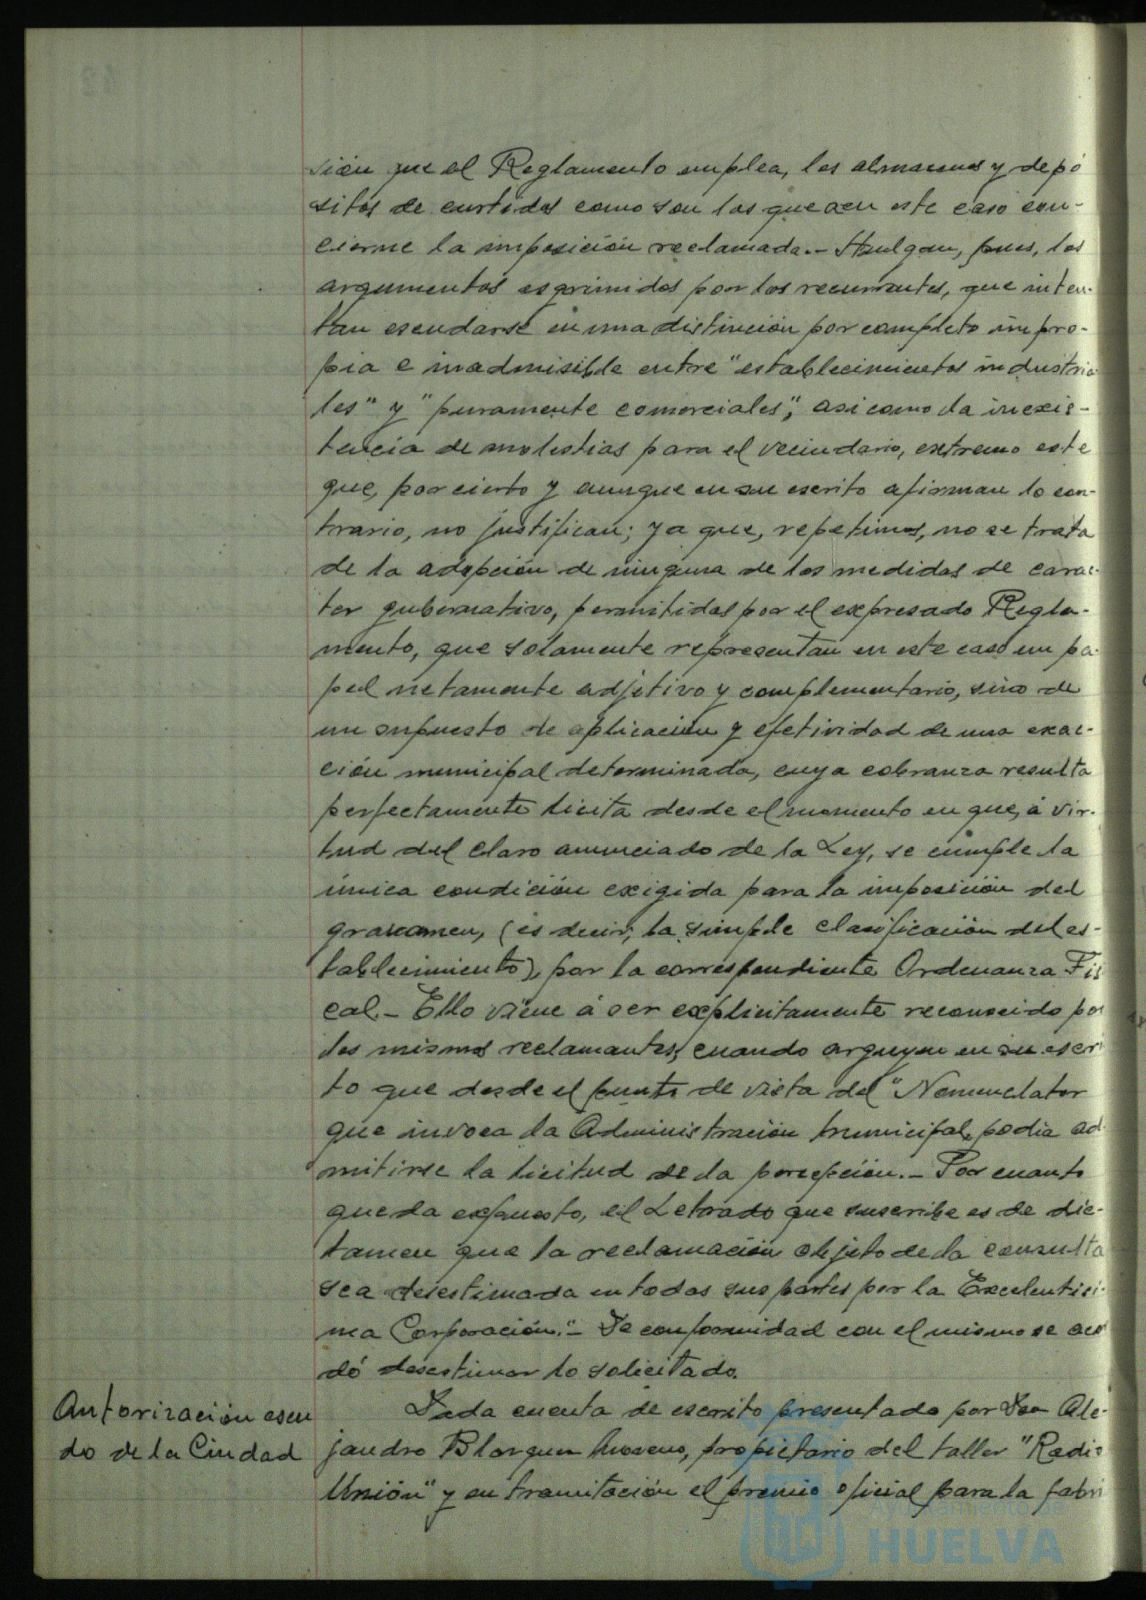 sión que el Reglamento emplea, los almacenes y depó
sitos de curtidos como son los que en este caso con-
cierne la imposición reclamada.- Huelgan, pues, los
argumentos esgrimidos por los recurrentes, que inten-
tan escudarse en una distinción por completo impro-
pia e inadmisible entre "establecimientos industria
les" y "puramente comerciales", asi como la inexis-
tencia de molestias para el vecindario, extremo este
que, por cierto y aunque en su escrito afirman lo con-
trario, no justifican; ya que, repetimos, no se trata
de la adopción de ninguna de las medidas de carac-
ter gubernativo, permitidas por el expresado Regla-
mento, que solamente representan en este caso un pa-
pel netamente adjetivo y complementario, sino de
un supuesto de aplicación y efetividad de una exac-
ción municipal determinada, cuya cobranza resulta
perfectamente licita desde el momento en que, á vir-
tud del claro anunciado de la Ley, se cumple la
única condición exigida para la imposición del
gravamen, (es decir, la simple clasificación del es-
tablecimiento), por la correspondiente Ordenanza Fis
cal.- Ello viene á ser explicitamente reconocido por
los mismos reclamantes, cuando arguyen en su escri
to que desde el punto de vista del "Nomenclator
que invoca la Administración municipal, podia ad-
mitirse la licitud de la percepción.- Por cuanto
queda expuesto, el Letrado que suscribe es de dic-
tamen que la reclamación objeto de la consulta
sea desestimada en todas sus partes por la Excelentisi-
ma Corporación."- De conformidad con el mismo se acor
dó desestimar lo solicitado.
Autorización escu
do de la Ciudad
Dada cuenta de escrito presentado por Don Ale-
jandro Moreno, propietario del taller "Radio
Unión" y en tramitación el premio oficial para la fabri
Ayuntamiento de
HUELVA